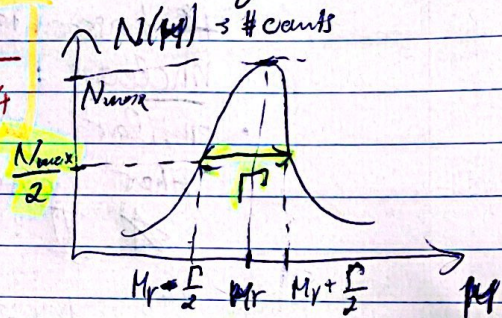 N(M) = # counts
4
Nmax
Nmax
2
Γ
Mr - Γ/2 Mr Mr + Γ/2 M